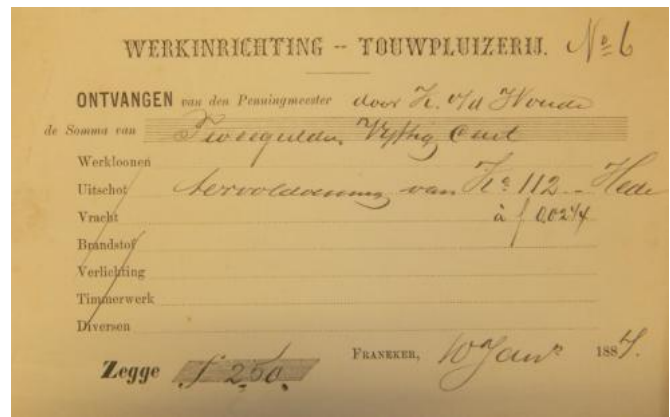 WERKINRICHTING -- TOUWPLUIZERIJ. No 6
ONTVANGEN van den Penningmeester door K. v/d Woude
de Somma van Tweegulden Vyftig Cent
Werkloonen
Uitschot ter voldoening van Ko 112 - Hede
Vracht à f 0.02 1/4
Brandstof
Verlichting
Timmerwerk
Diversen
FRANEKER, 10 Jan 1884.
Zegge f 2.50.